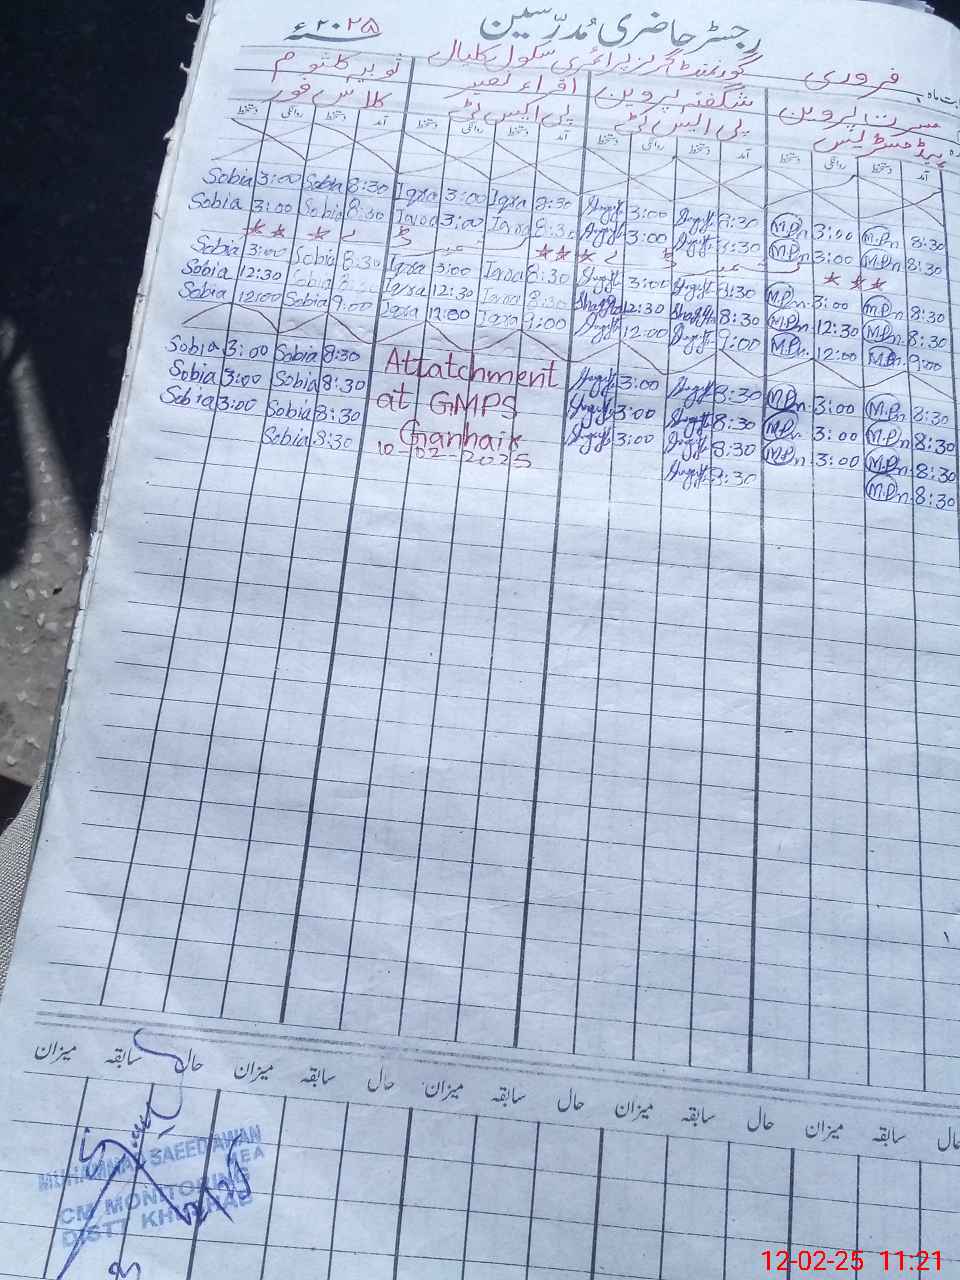 رجسٹر حاضری مُدرّسین
۲۰۲۵ء
بابت ماہ فروری گورنمنٹ گرلز پرائمری سکول کلیال
مسرت پروین شگفتہ پروین اقراء نصیر ثوبیہ کلثوم
ہیڈ مسٹریس پی ایس ٹی پی ایس ٹی کلاس فور
آمد دستخط روانگی دستخط آمد دستخط روانگی دستخط آمد دستخط روانگی دستخط آمد دستخط روانگی دستخط
Sobia 3:00 Sobia 8:30 Iqra 3:00 Iqra 8:30 3:00 8:30 M.Pn 3:00 M.Pn 8:30
Sobia 3:00 Sobia 8:30 Iqra 3:00 Iqra 8:30 3:00 8:30 M.Pn 3:00 M.Pn 8:30
Sobia 3:00 Sobia 8:30 Iqra 3:00 Iqra 8:30 3:00 8:30 M.Pn 3:00 M.Pn 8:30
Sobia 12:30 Sobia 8:30 Iqra 12:30 Iqra 8:30 12:30 8:30 M.Pn 12:30 M.Pn 8:30
Sobia 12:00 Sobia 9:00 Iqra 12:00 Iqra 9:00 12:00 9:00 M.Pn 12:00 M.Pn 9:00
Sobia 3:00 Sobia 8:30 Attatchment 3:00 8:30 M.Pn 3:00 M.Pn 8:30
Sobia 3:00 Sobia 8:30 at GMPS 3:00 8:30 M.Pn 3:00 M.Pn 8:30
Sobia 3:00 Sobia 8:30 3:00 8:30 M.Pn 3:00 M.Pn 8:30
Sobia 8:30 10-02-2025 8:30 M.Pn 8:30
حال سابقہ میزان حال سابقہ میزان حال سابقہ میزان حال سابقہ میزان حال سابقہ میزان
MUHAMMAD SAEED AWAN
MEA
CM MONITORING
DISTT KHUSHAB
12-02-25 11:21